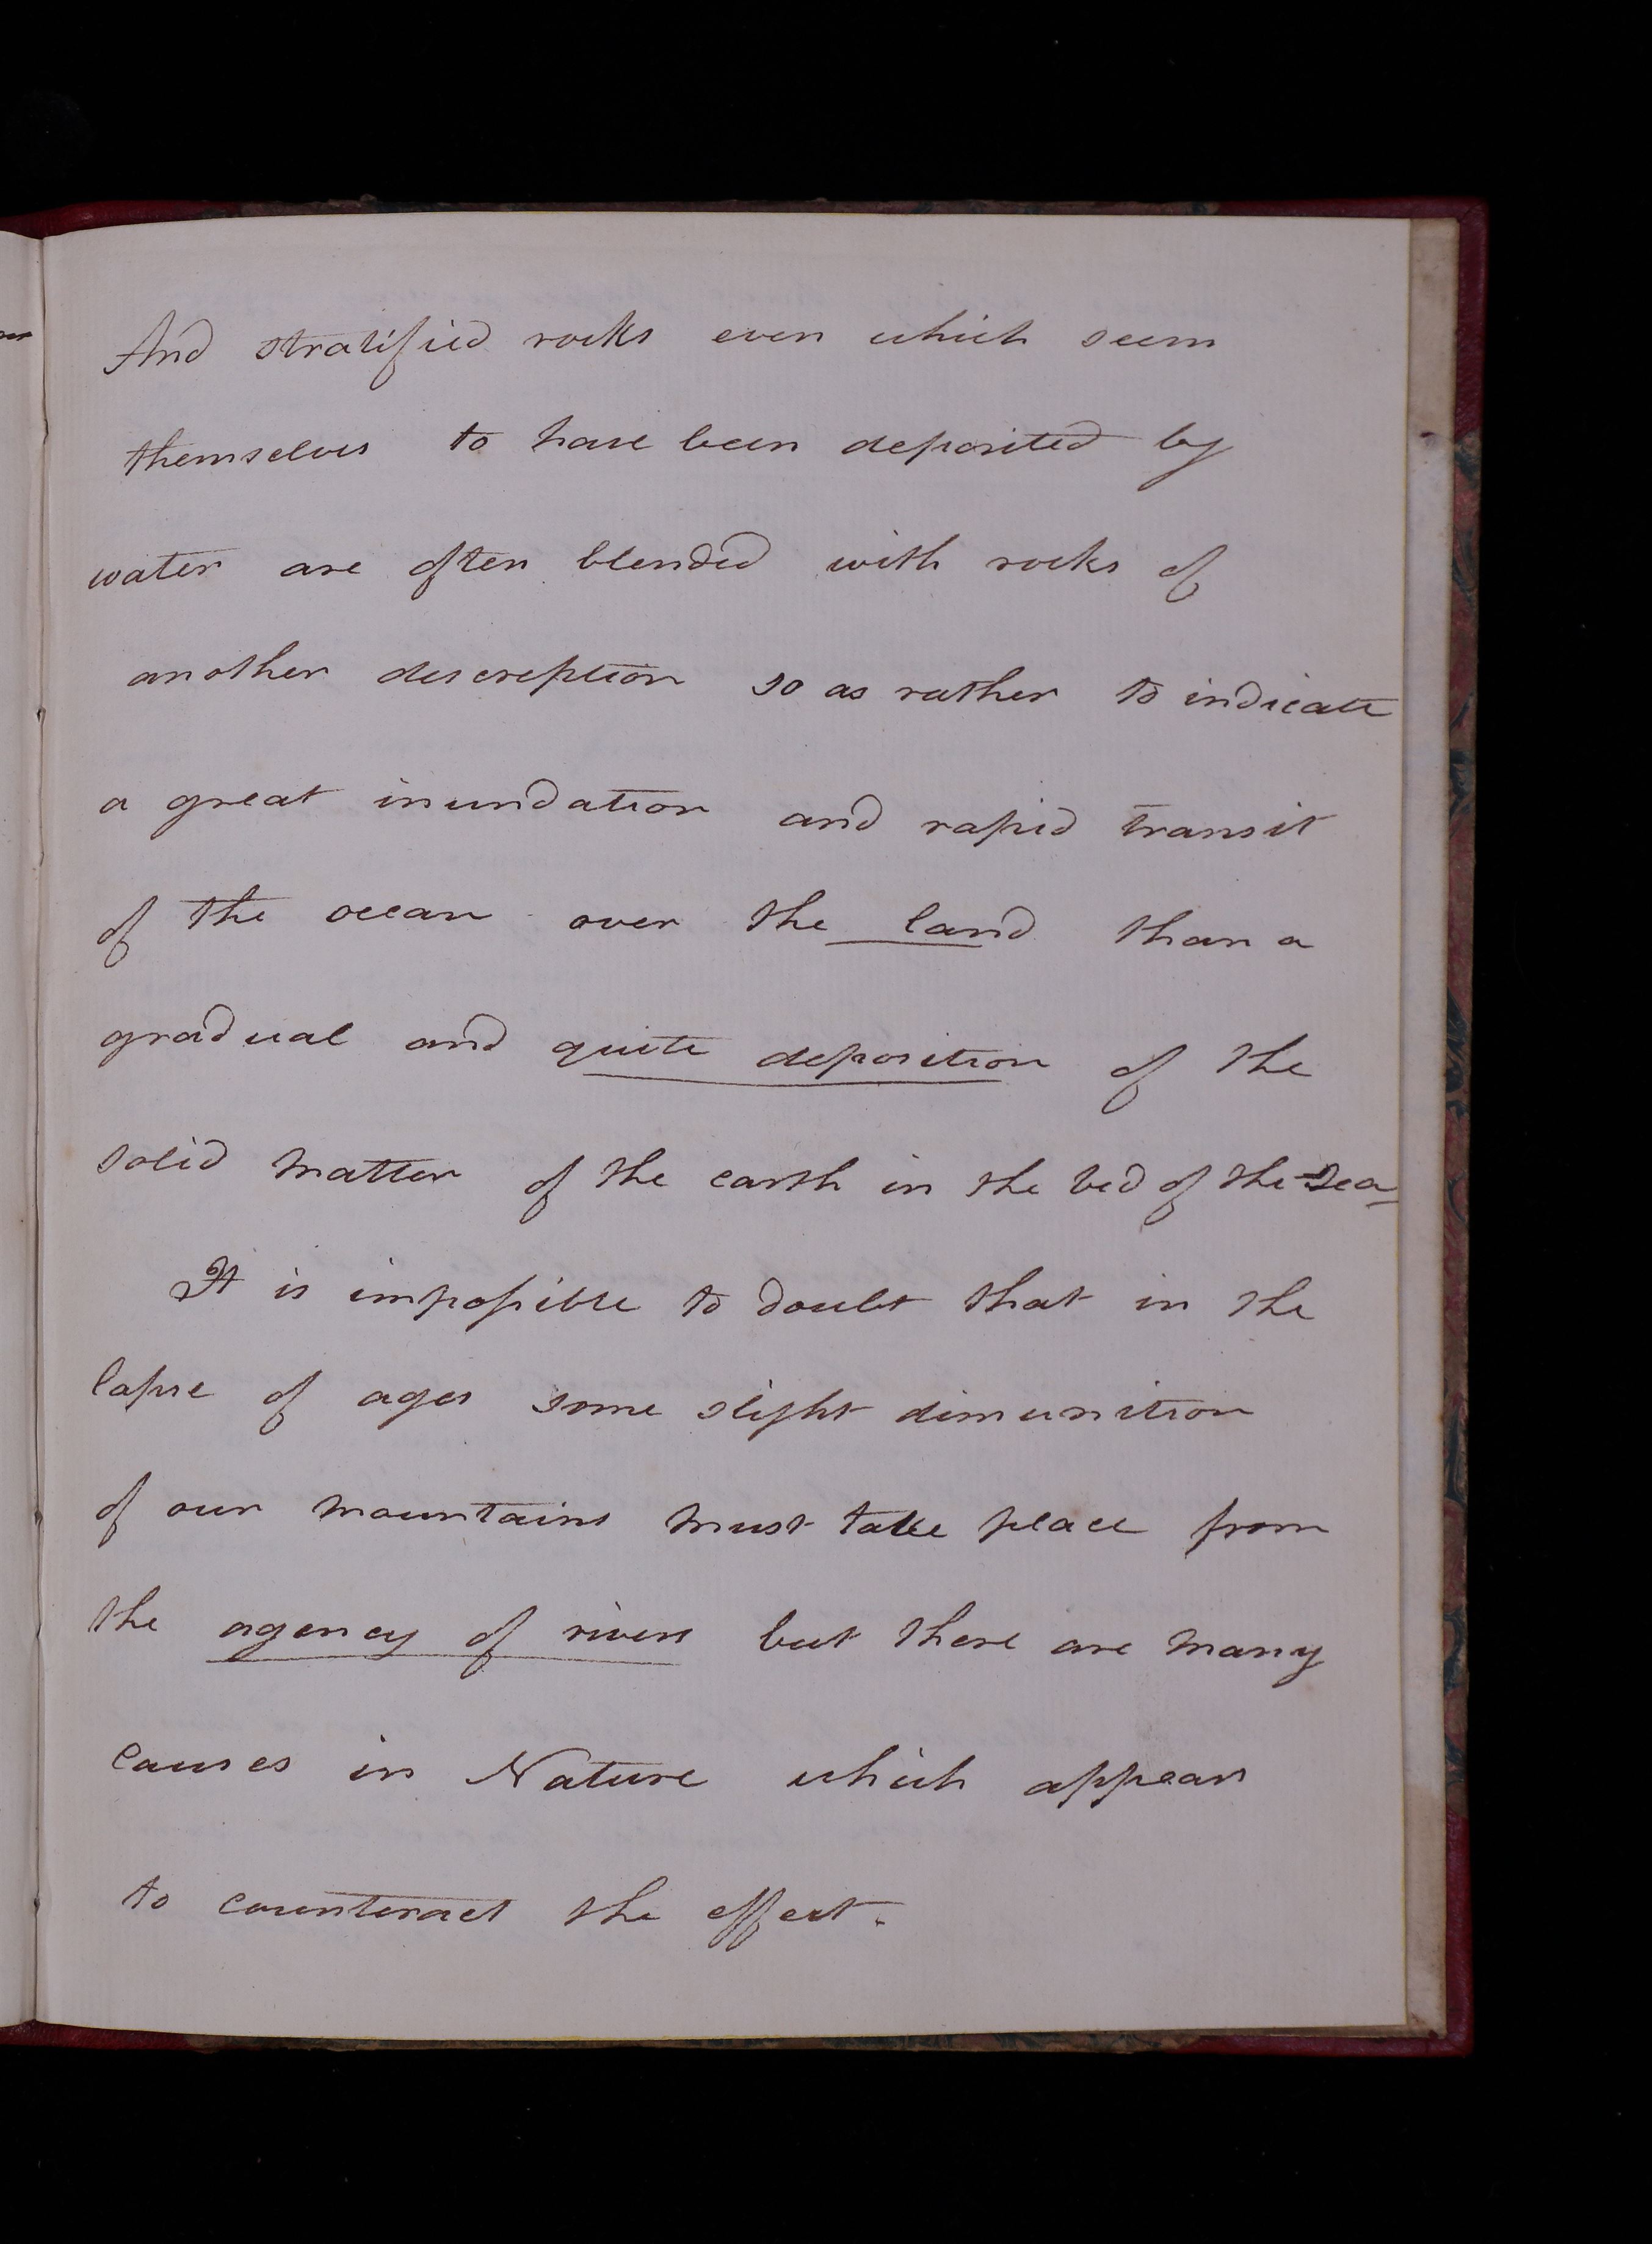 And stratified rocks even which seem
themselves to have been deposited by
water are often blended with rocks of
another descreption so as rather to indicate
a great inundation and rapid transit
of the ocean over the land than a
gradual and quite deposition of the
solid matter of the earth in the bed of the Sea
It is impossible to doubt that in the
lapse of ages some slight dimunition
of our mountains must take place from
the agency of rivers but there are many
causes in Nature which appear
to counteract the effect.